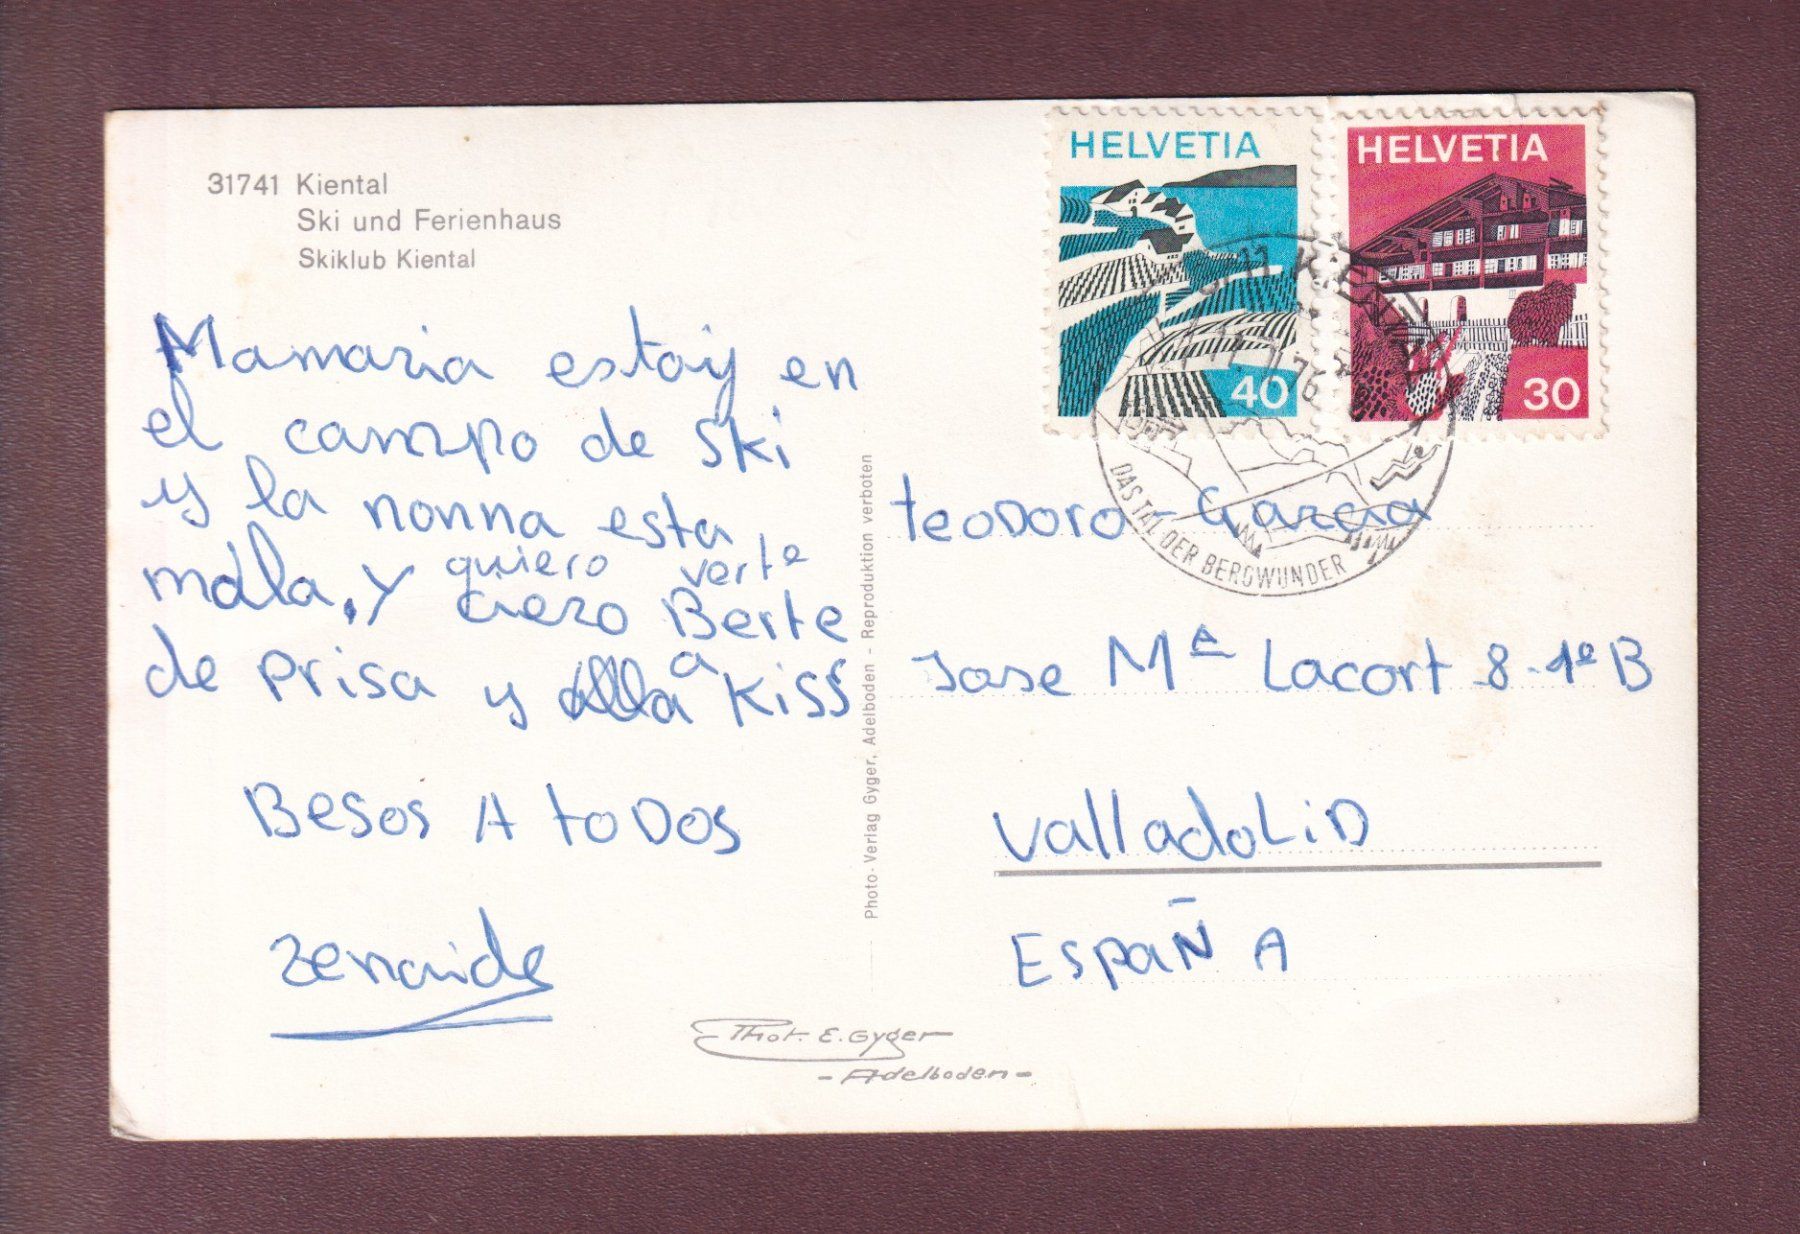 31741 Kiental
Ski und Ferienhaus
Skiklub Kiental
HELVETIA
40
HELVETIA
30
76
DAS TAL DER BERGWUNDER
Mamaria estoiy en
el campo de Ski
y la nonna esta
mala, y
quiero verte
ciero Berte
de prisa y a Kiss
Besos A toDos
zenaide
Photo-Verlag Gyger, Adelboden - Reproduktion verboten
teoDoro - Garcia
Jose Mª Lacort 8-1º B
ValladoLiD
ESpaÑA
Phot. E. Gyger
- Adelboden -